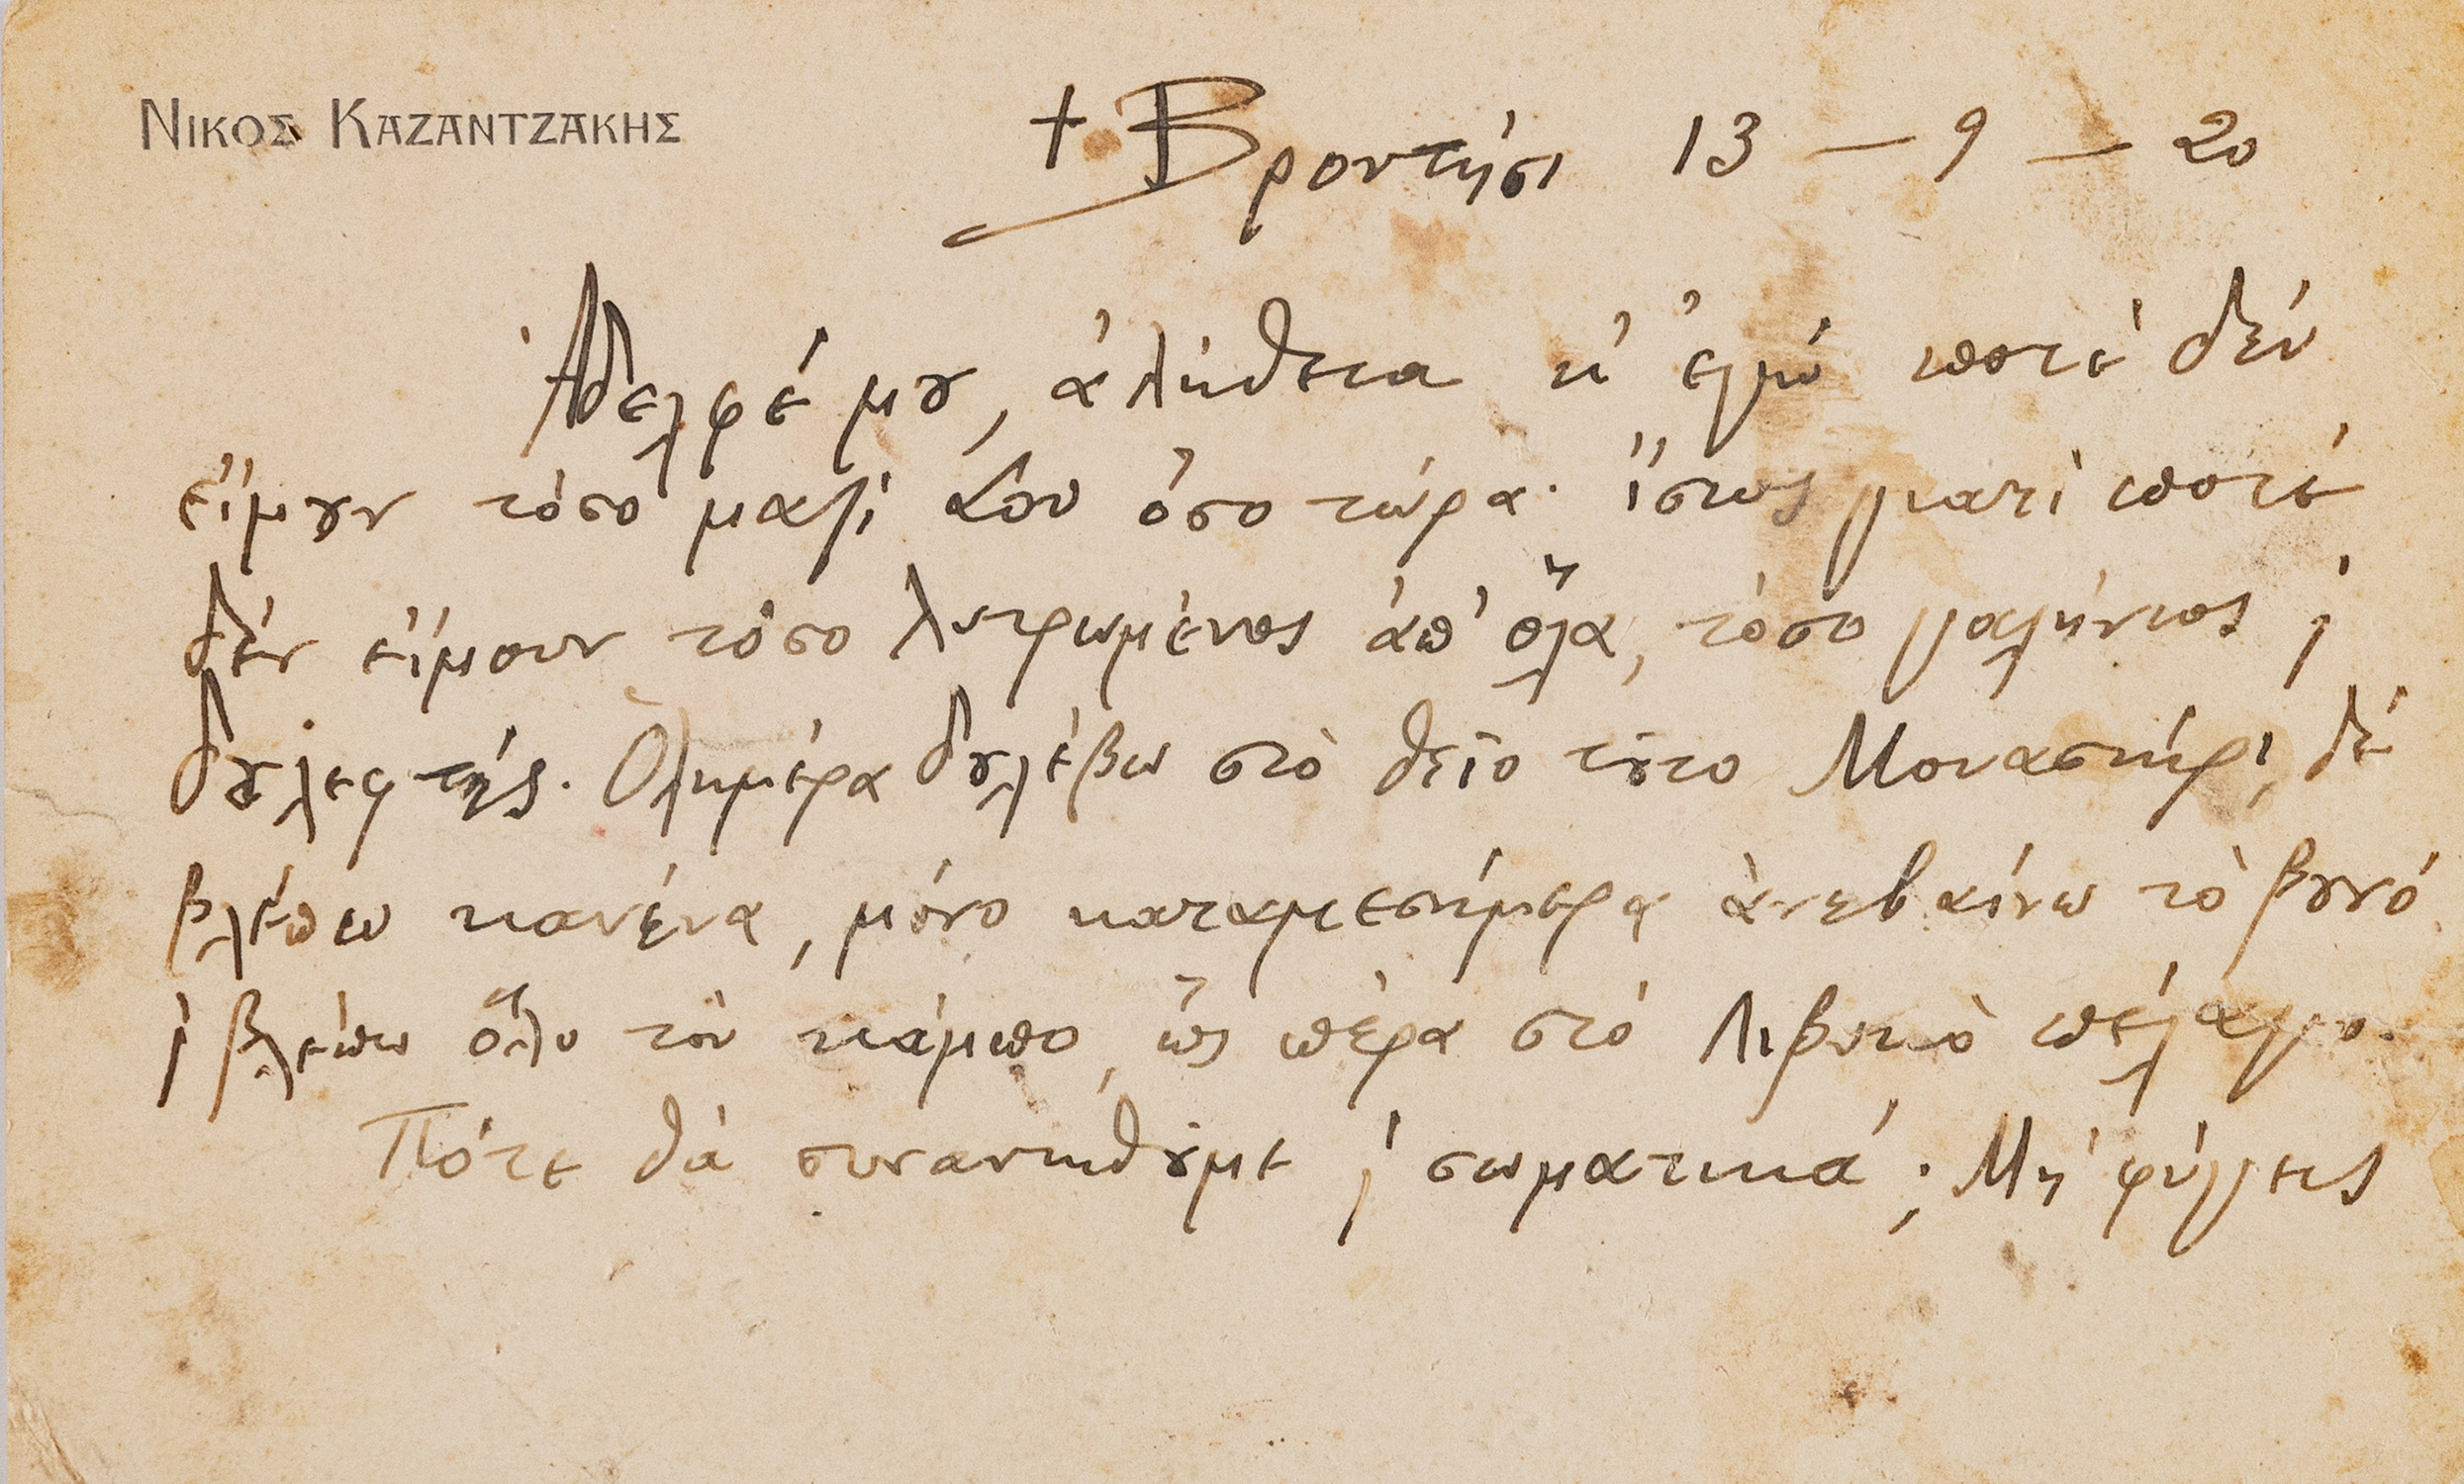 ΝΙΚΟΣ ΚΑΖΑΝΤΖΑΚΗΣ
+ Βροντήσι 13 – 9 – 20
Ἀδελφέ μȣ, ἀλήθεια κ' ἐγώ ποτὲ δέν
εἴμȣν τόσο μαζί Σου ὅσο τώρα· ἴσως γιατὶ ποτέ
δέν εἴμουν τόσο λυτρωμένος ἀπ' ὅλα, τόσο γαλήνιος ϗ
δȣλεφτής. Ὁλημέρα δȣλέβω στὸ θεῖο τȣ͂το Μοναστήρι, δέ
βλέπω κανένα, μόνο καταμεσήμερα ἀνεβαίνω τὸ βȣνό
ϗ βλέπω ὅλο τὸν κάμπο, ὥς πέρα στό Λιβυκὸ πέλαγο.
Πότε θὰ συναντηθȣ͂με ϗ σωματικά; Μή φύγεις